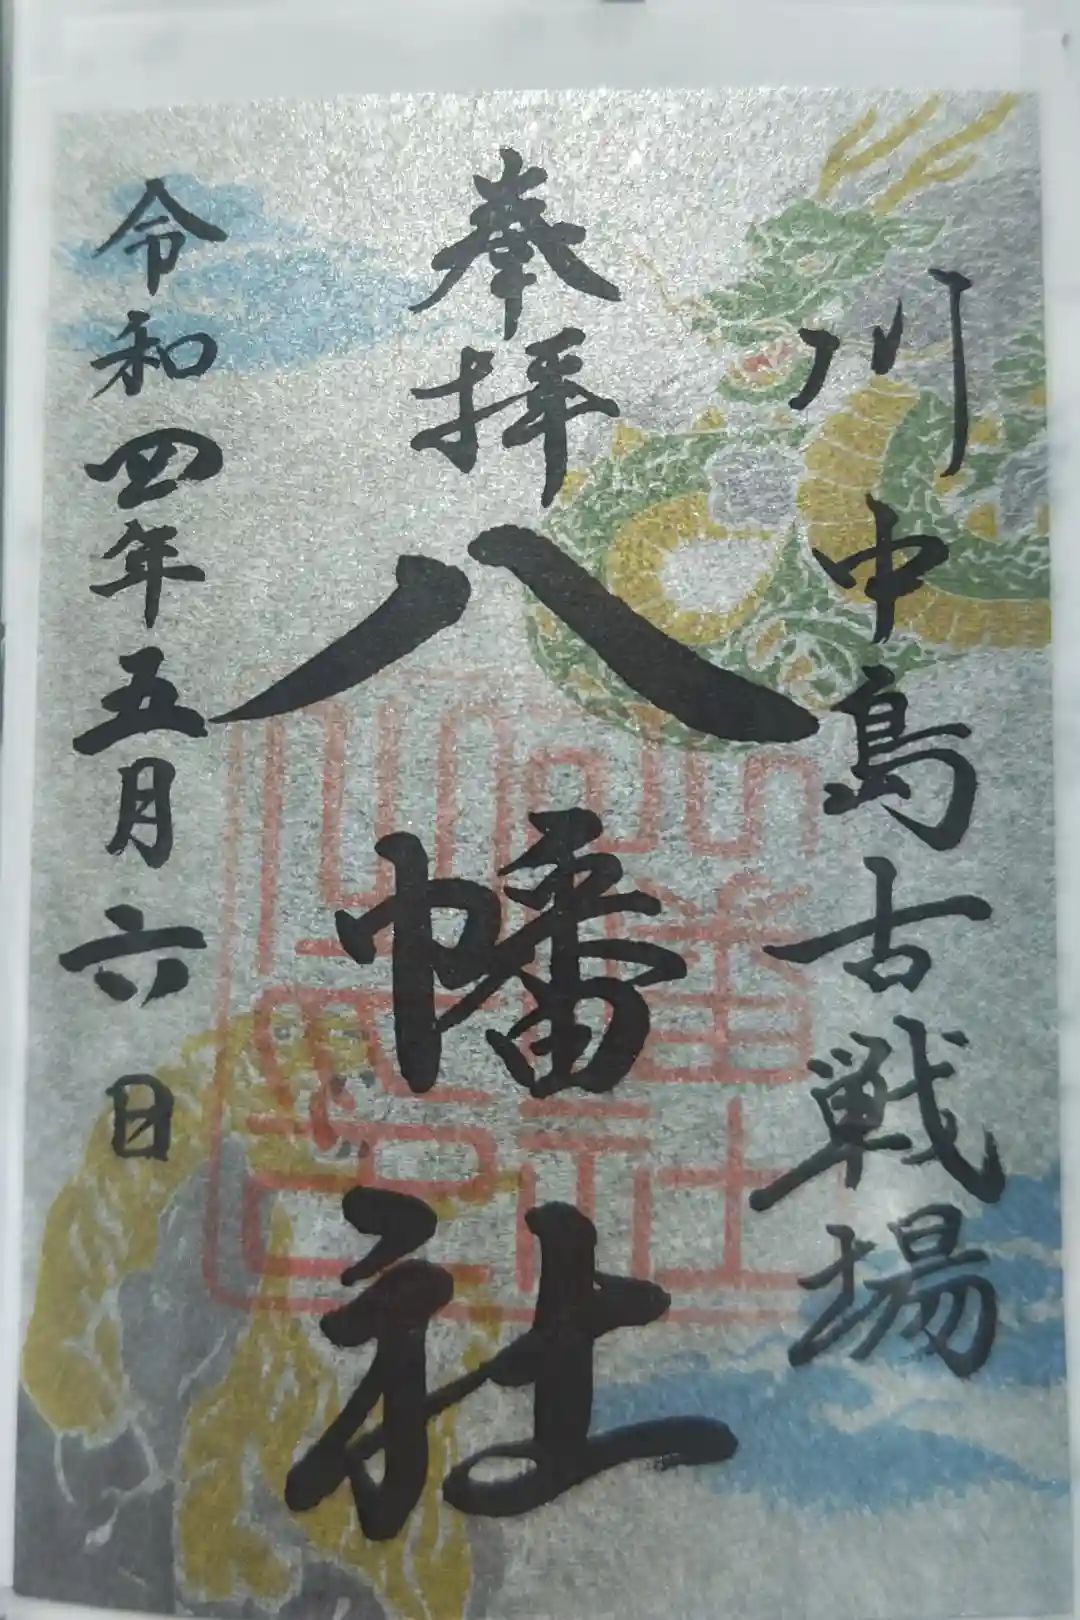 川中島古戦場
奉拝
八幡社
令和四年五月六日